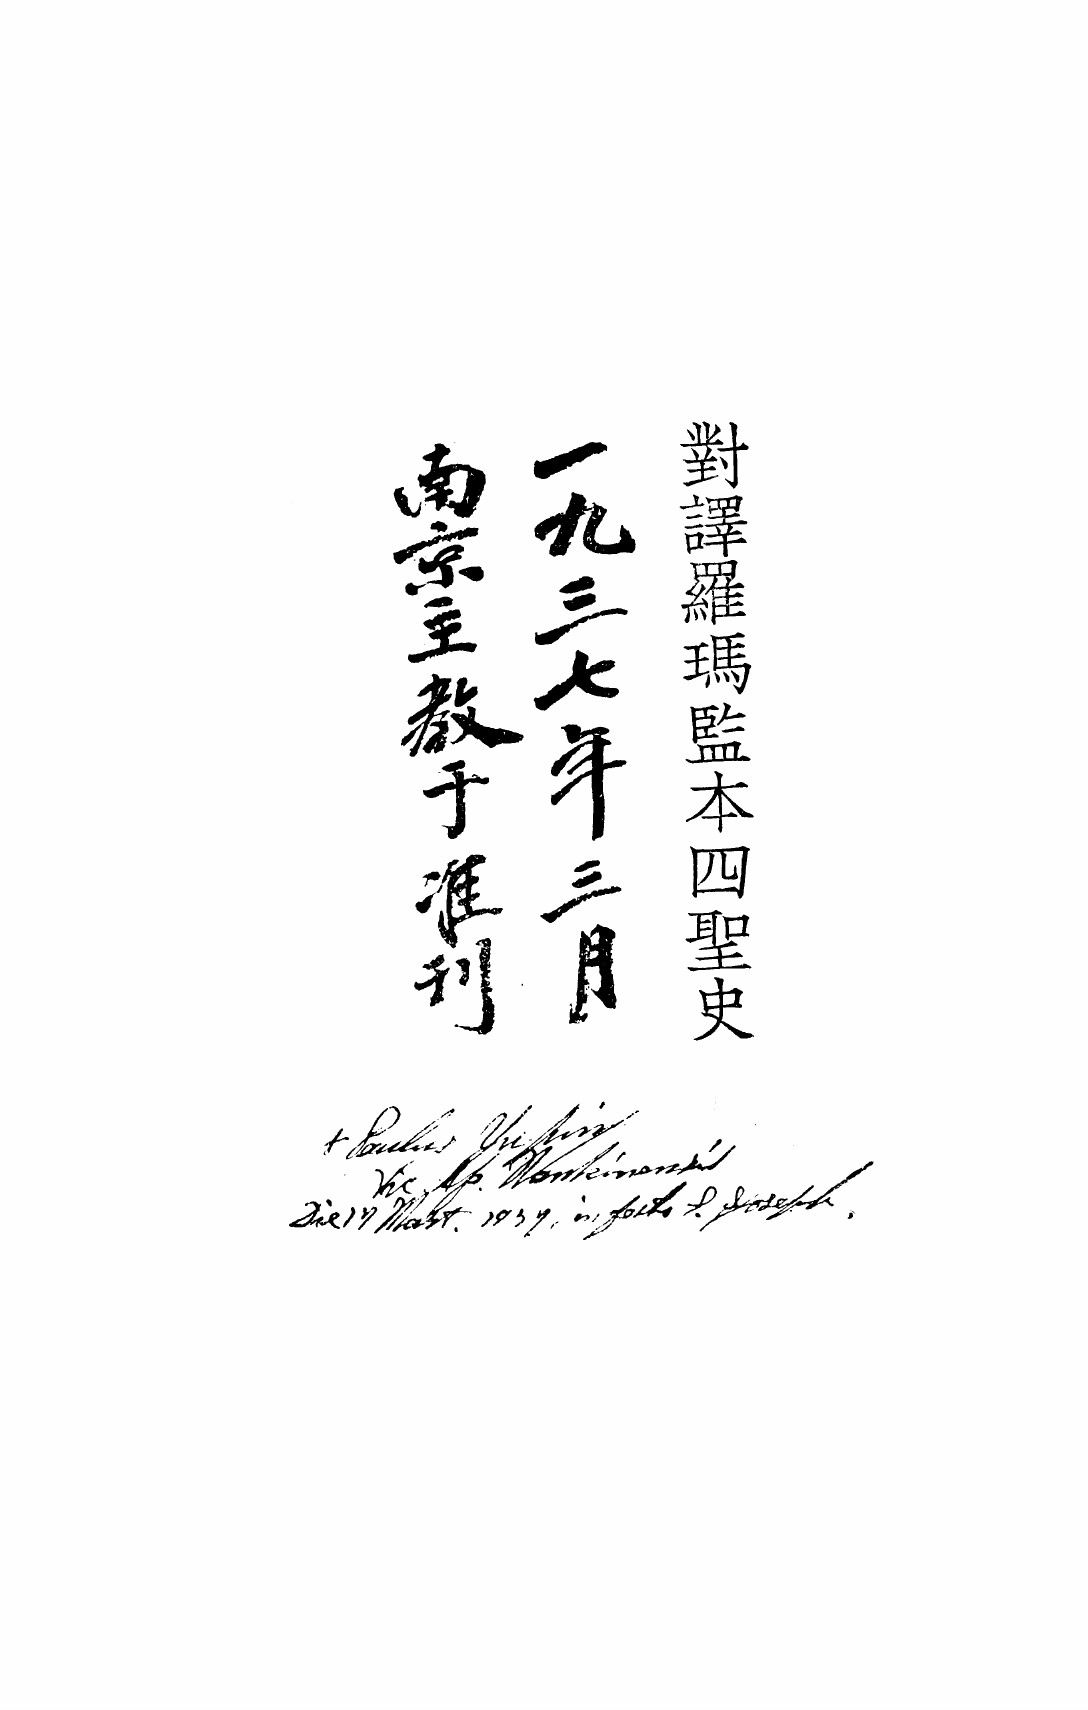 對譯羅瑪監本四聖史
一九三七年三月
南京主教于准刊
+ Paulus Yu Pin
Vic. Ap. Nankinensis
Die 19 Mart. 1937, in festo S. Joseph.